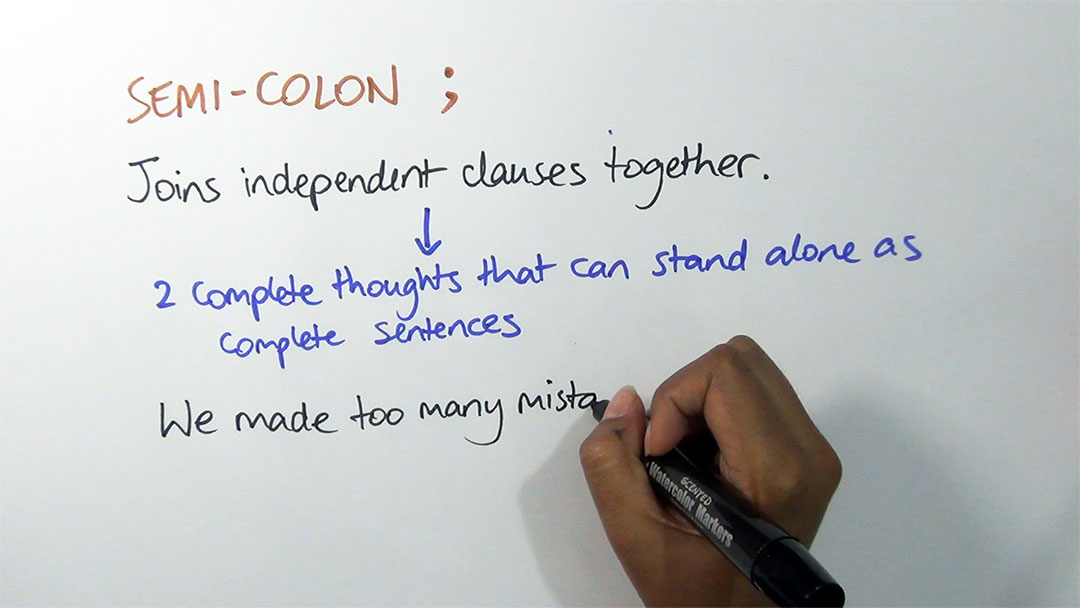 SEMI-COLON ;
Joins independent clauses together.
2 complete thoughts that can stand alone as
complete sentences
We made too many mista
SCENTED
Watercolor Markers